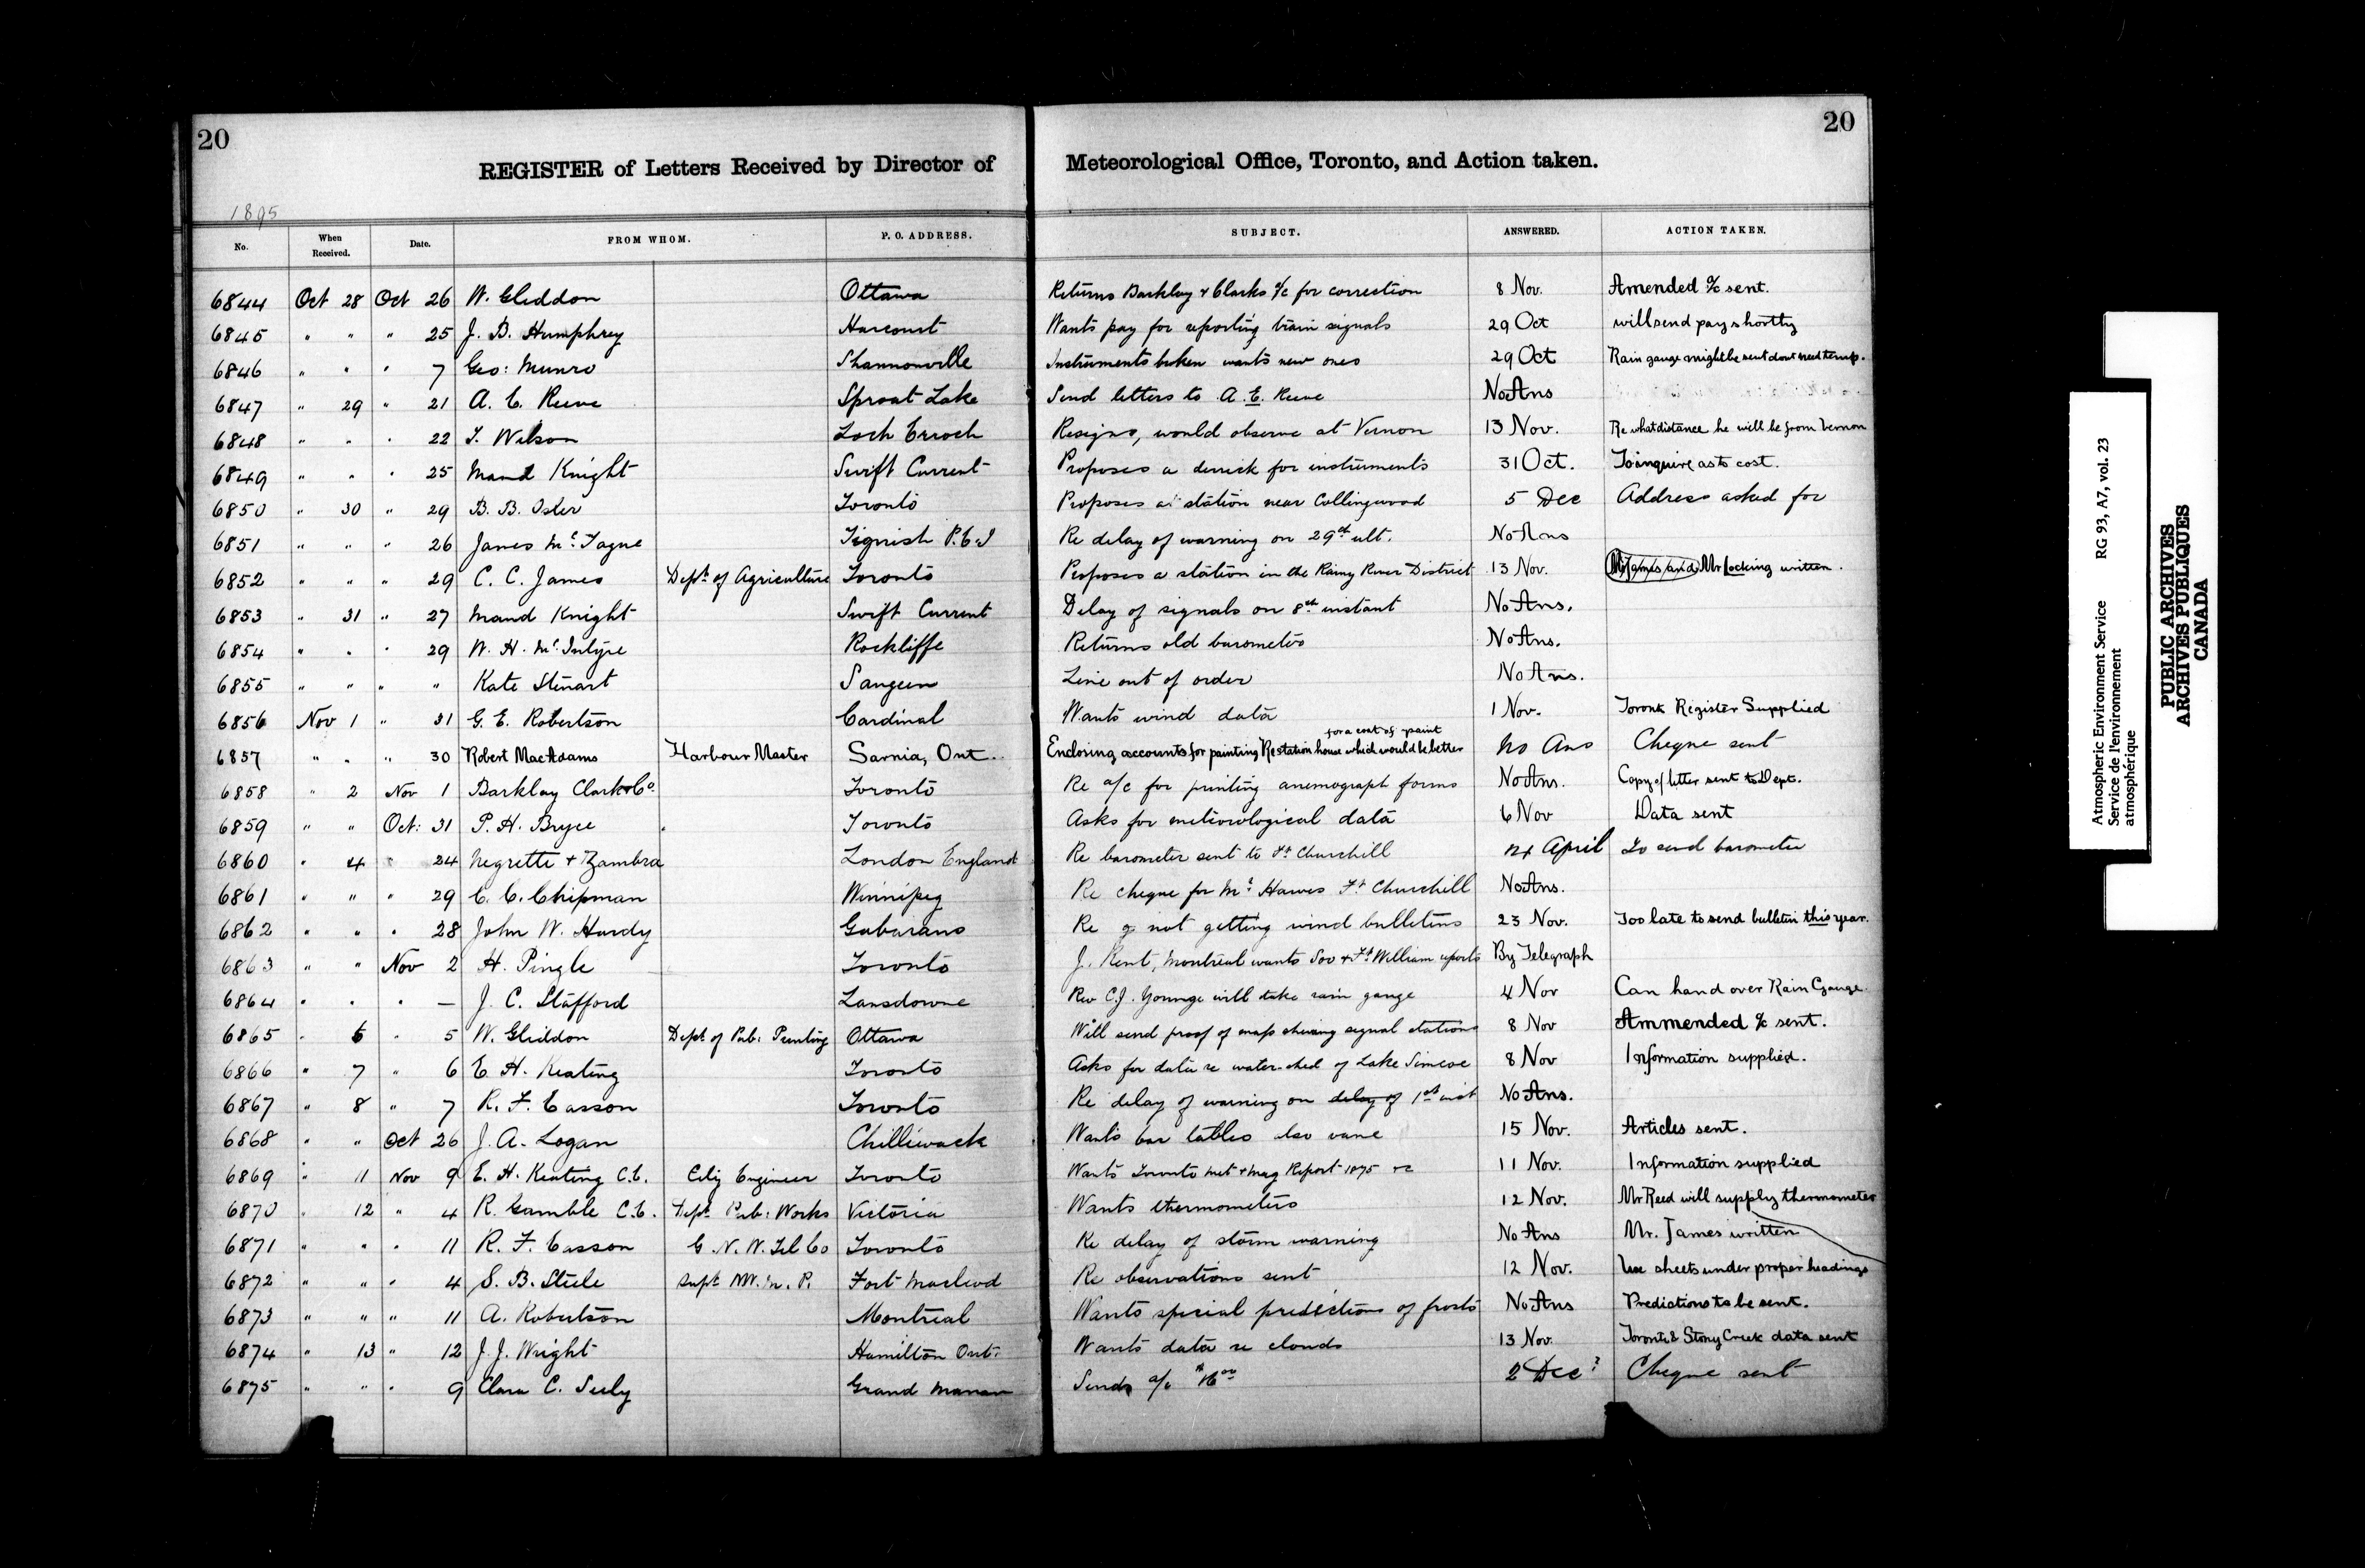 20
20
REGISTER of Letters Received by Director of Meteorological Office, Toronto, and Action taken.
1895
No. When Received. Date. FROM WHOM. P. O. ADDRESS. SUBJECT. ANSWERED. ACTION TAKEN.
6844 Oct 28 Oct 26 W. Gliddon Ottawa Returns Barklay & Clarks a/c for correction 8 Nov. Amended a/c sent.
6845 " " " 25 J. B. Humphrey Harcourt Wants pay for reporting train signals 29 Oct will send pay shortly
6846 " " " 7 Geo: Munro Shannonville Instruments broken wants new ones 29 Oct Rain gauge might be sent dont need temp.
6847 " 29 " 21 A. E. Reeve Sproat Lake Send letters to A. E. Reeve No Ans
6848 " " " 22 T. Wilson Loch Erroch Resigns, would observe at Vernon 13 Nov. Re what distance he will be from Vernon
6849 " " " 25 Maud Knight Swift Current Proposes a derrick for instruments 31 Oct. To inquire as to cost.
6850 " 30 " 29 B. B. Osler Toronto Proposes a station near Collingwood 5 Dec Address asked for
6851 " " " 26 James Mc Tague Tignish P.E.I Re delay of warning on 29th ult. No Ans
6852 " " " 29 C. C. James Dept of Agriculture Toronto Proposes a station in the Rainy River District 13 Nov. Mr James and Mr Locking written.
6853 " 31 " 27 Maud Knight Swift Current Delay of signals on 8th instant No Ans.
6854 " " " 29 W. H. McIntyre Rockliffe Returns old barometer No Ans.
6855 " " " " Kate Stewart Saugeen Line out of order No Ans.
6856 Nov 1 " 31 G. E. Robertson Cardinal Wants wind data 1 Nov. Toronto Register Supplied
for a coat of paint
6857 " " " 30 Robert MacAdams Harbour Master Sarnia, Ont. Enclosing accounts for painting Re station house which would be better No Ans Cheque sent
6858 " 2 Nov 1 Barklay Clark & Co. Toronto Re a/c for printing anemograph forms No Ans. Copy of letter sent to Dept.
6859 " " Oct: 31 P. H. Bryce Toronto Asks for meteorological data 6 Nov Data sent
6860 " 4 " 24 Negrette & Zambra London England Re barometer sent to Ft Churchill April To send barometer
6861 " " " 29 C. C. Chipman Winnipeg Re cheque for Mr Hawes Ft Churchill No Ans.
6862 " " " 28 John W. Hardy Gabarano Re not getting wind bulletins 23 Nov. Too late to send bulletin this year.
6863 " " Nov 2 H. Pingle Toronto J. Kent, Montreal wants Soo & Ft William reports By Telegraph
6864 " " " — J. C. Stafford Lansdowne Rev C.J. Younge will take rain gauge 4 Nov Can hand over Rain Gauge.
6865 " 6 " 5 W. Gliddon Dept of Pub: Printing Ottawa Will send proof of map shewing signal stations 8 Nov Ammended a/c sent.
6866 " 7 " 6 E. H. Keating Toronto Asks for data re water-shed of Lake Simcoe 8 Nov Information supplied.
6867 " 8 " 7 R. F. Easson Toronto Re delay of warning on delay of 1st inst No Ans.
6868 " " Oct 26 J. A. Logan Chilliwack Wants bar tables also vane 15 Nov. Articles sent.
6869 " 11 Nov 9 E. H. Keating C.E. City Engineer Toronto Wants Toronto met & mag Report 1875 &c 11 Nov. Information supplied
6870 " 12 " 4 R. Gamble C.E. Dept Pub: Works Victoria Wants thermometers 12 Nov. Mr Reed will supply thermometer
6871 " " " 11 R. F. Easson G. N. W. Tel Co Toronto Re delay of storm warning No Ans Mr. James written
6872 " " " 4 S. B. Steele Supt N.W.M.P. Fort Macleod Re observations sent 12 Nov. Use sheets under proper headings
6873 " " " 11 A. Robertson Montreal Wants special predictions of frosts No Ans Predictions to be sent.
6874 " 13 " 12 J. J. Wright Hamilton Ont. Wants data re clouds 13 Nov. Toronto & Stony Creek data sent
6875 " " " 9 Clara C. Seely Grand Manan Sends a/c 2 Dec? Cheque sent
Atmospheric Environment Service RG 93, A7, vol. 23
Service de l'environnement
atmosphérique
PUBLIC ARCHIVES
ARCHIVES PUBLIQUES
CANADA